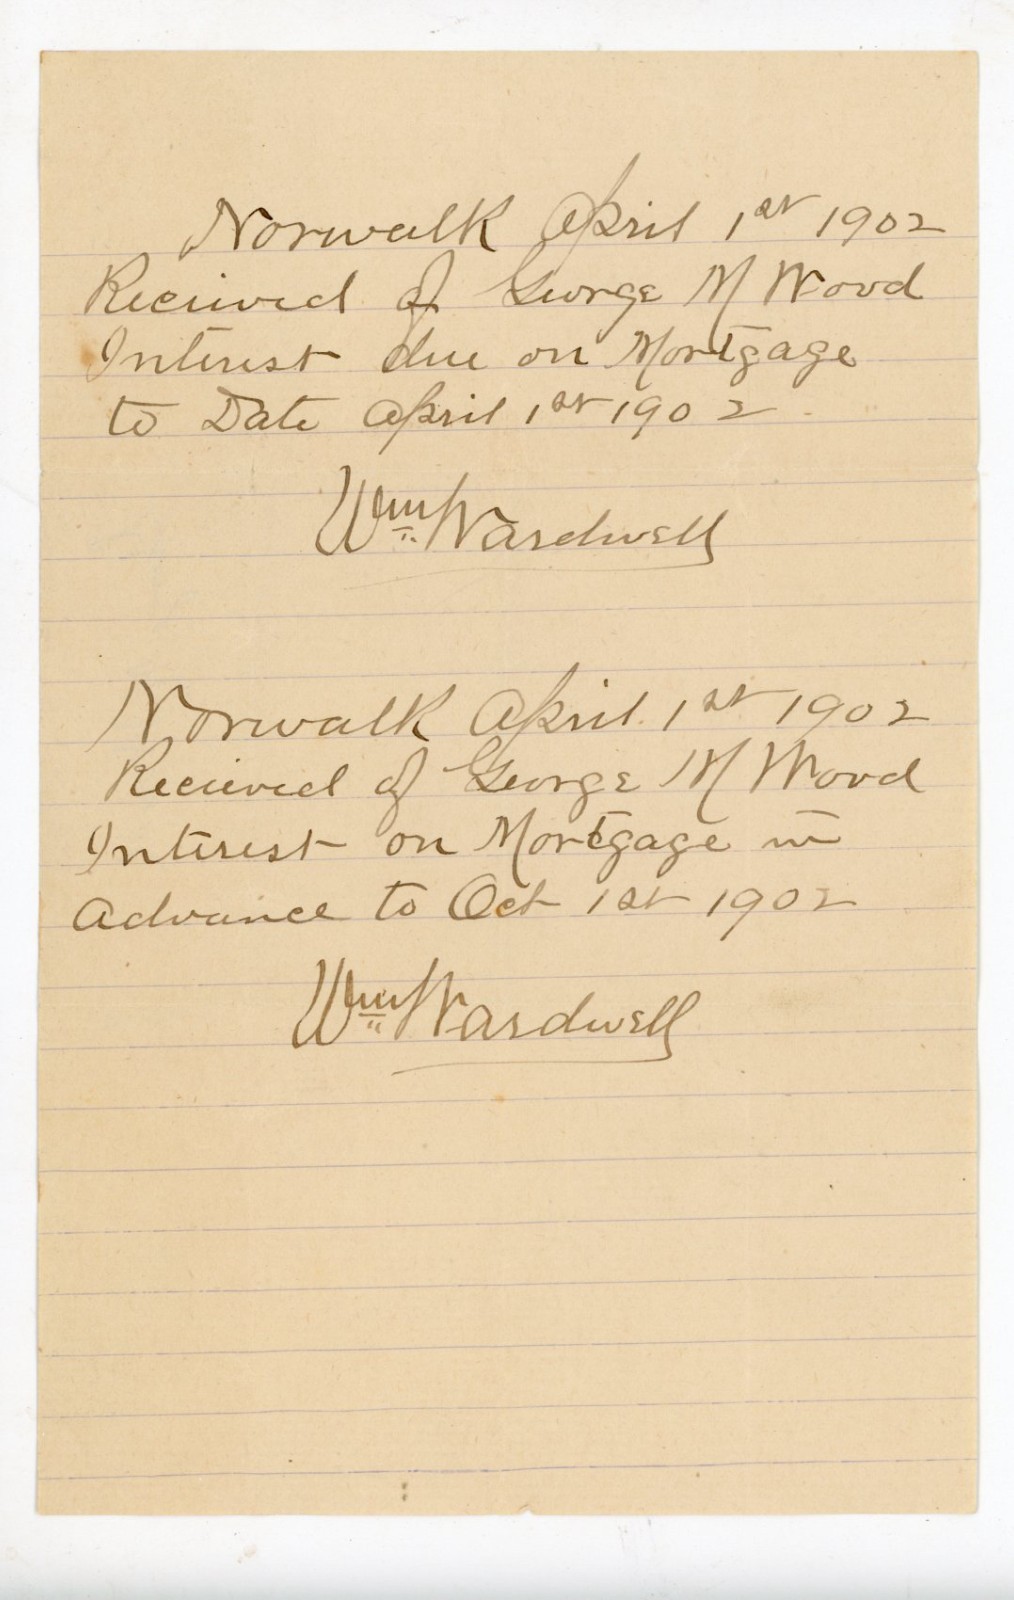 Norwalk April 1st 1902
Recieved of George M Wood
Interest due on Mortgage
to Date April 1st 1902
Wm Wardwell
Norwalk April 1st 1902
Recieved of George M Wood
Interest on Mortgage in
Advance to Oct 1st 1902
Wm Wardwell